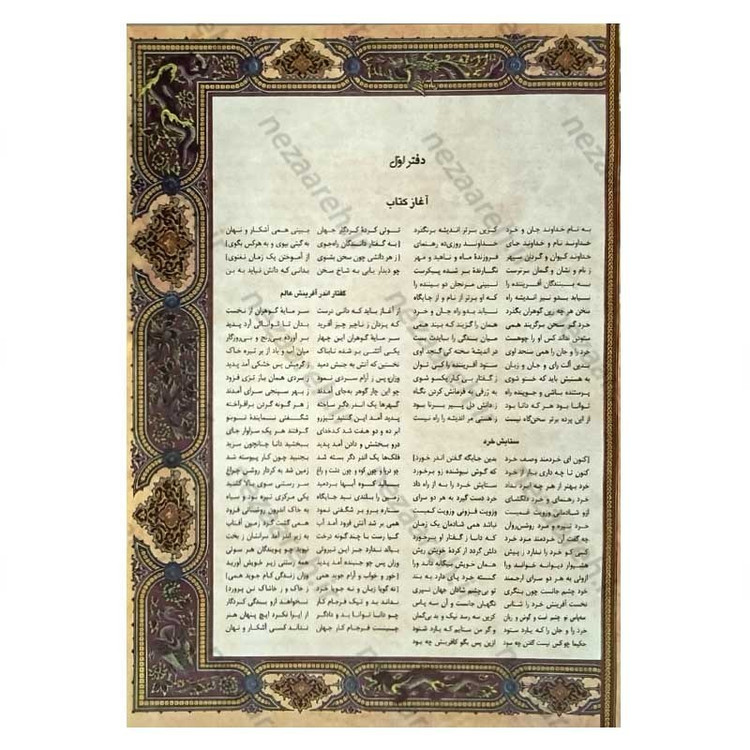 دفتر اوّل
آغاز کتاب
به نام خداوند جان و خرد کزین برتر اندیشه برنگذرد
خداوند نام و خداوند جای خداوند روزی‌ده رهنمای
خداوند کیوان و گردان سپهر فروزندهٔ ماه و ناهید و مهر
ز نام و نشان و گمان برترست نگارندهٔ بر شده پیکرست
به بینندگان آفریننده را نبینی مرنجان دو بیننده را
نیابد بدو نیز اندیشه راه که او برتر از نام و از جایگاه
سخن هر چه زین گوهران بگذرد نیابد بدو راه جان و خرد
خرد گر سخن برگزیند همی همان را گزیند که بیند همی
ستودن نداند کس او را چو هست میان بندگی را ببایدت بست
خرد را و جان را همی سنجد اوی در اندیشهٔ سخته کی گنجد اوی
بدین آلت رای و جان و زبان ستود آفریننده را کی توان
به هستیش باید که خستو شوی ز گفتار بی کار یکسو شوی
پرستنده باشی و جوینده راه به ژرفی به فرمانش کردن نگاه
توانا بود هر که دانا بود ز دانش دل پیر برنا بود
از این پرده برتر سخن‌گاه نیست ز هستی مر اندیشه را راه نیست
ستایش خرد
[کنون ای خردمند وصف خرد بدین جایگه گفتن اندر خورد]
کنون تا چه داری بیار از خرد که گوش نیوشنده زو برخورد
خرد بهتر از هر چه ایزد بداد ستایش خرد را به از راه داد
خرد رهنمای و خرد دلگشای خرد دست گیرد به هر دو سرای
ازو شادمانی وزویت غمیست وزویت فزونی وزویت کمیست
خرد تیره و مرد روشن‌روان نباشد همی شادمان یک زمان
چه گفت آن خردمند مرد خرد که دانا ز گفتار او برخورد
کسی کو خرد را ندارد ز پیش دلش گردد از کردهٔ خویش ریش
هشیوار دیوانه خواند ورا همان خویش بیگانه داند ورا
ازویی به هر دو سرای ارجمند گسسته خرد پای دارد به بند
خرد چشم جانست چون بنگری تو بی‌چشم شادان جهان نسپری
نخست آفرینش خرد را شناس نگهبان جانست و آن سه پاس
سه‌پاس تو چشم است و گوش و زبان کزین سه رسد نیک و بد بی‌گمان
خرد را و جان را که یارد ستود و گر من ستایم که یارد شنود
حکیما چو کس نیست گفتن چه سود ازین پس بگو کافرینش چه بود
تویی کردهٔ کردگار جهان ببینی همی آشکار و نهان
[به گفتار دانندگان راه‌جوی به گیتی بپوی و به هرکس بگوی]
[ز هر دانشی چون سخن بشنوی از آموختن یک زمان نغنوی]
چو دیدار یابی به شاخ سخن بدانی که دانش نیاید به بن
گفتار اندر آفرینش عالم
ز آغاز باید که دانی درست سر مایهٔ گوهران از نخست
که یزدان ز ناچیز چیز آفرید بدان تا توانایی آرد پدید
سر مایهٔ گوهران این چهار بر آورده بی‌رنج و بی‌روزگار
یکی آتشی بر شده تابناک میان آب و باد از بر تیره خاک
نخستین که آتش به جنبش دمید ز گرمیش پس خشکی آمد پدید
وزان پس ز آرام سردی نمود ز سردی همان باز تری فزود
چو این چار گوهر به‌جای آمدند ز بهر سپنجی سرای آمدند
گهرها یک اندر دگر ساخته ز هر گونه گردن برافراخته
پدید آمد این گنبد تیزرو شگفتی نمایندهٔ نوبنو
ابر ده و دو هفت شد کدخدای گرفتند هر یک سزاوار جای
درو بخشش و دادن آمد پدید ببخشید دانا چنانچون سزید
فلک‌ها یک اندر دگر بسته شد بجنبید چون کار پیوسته شد
چو دریا و چون کوه و چون دشت و راغ زمین شد به کردار روشن چراغ
ببالید کوه آبها بردمید سر رستنی سوی بالا کشید
زمین را بلندی نبد جایگاه یکی مرکزی تیره بود و سیاه
ستاره برو بر شگفتی نمود به خاک اندرون روشنائی فزود
همی بر شد آتش فرود آمد آب همی گشت گرد زمین آفتاب
گیا رست با چند گونه درخت به زیر اندر آمد سرانشان ز بخت
ببالد ندارد جز این نیرویی نپوید چو پویندگان هر سویی
وزان پس چو جنبنده آمد پدید همه رستنی زیر خویش آورید
[خور و خواب و آرام جوید همی وزان زندگی کام جوید همی]
[نه گویا زبان و نه جویا خرد ز خاک و ز خاشاک تن پرورد]
نداند بد و نیک فرجام کار نخواهد ازو بندگی کردگار
چو دانا توانا بد و دادگر از ایرا نکرد ایچ پنهان هنر
چنینست فرجام کار جهان نداند کسی آشکار و نهان